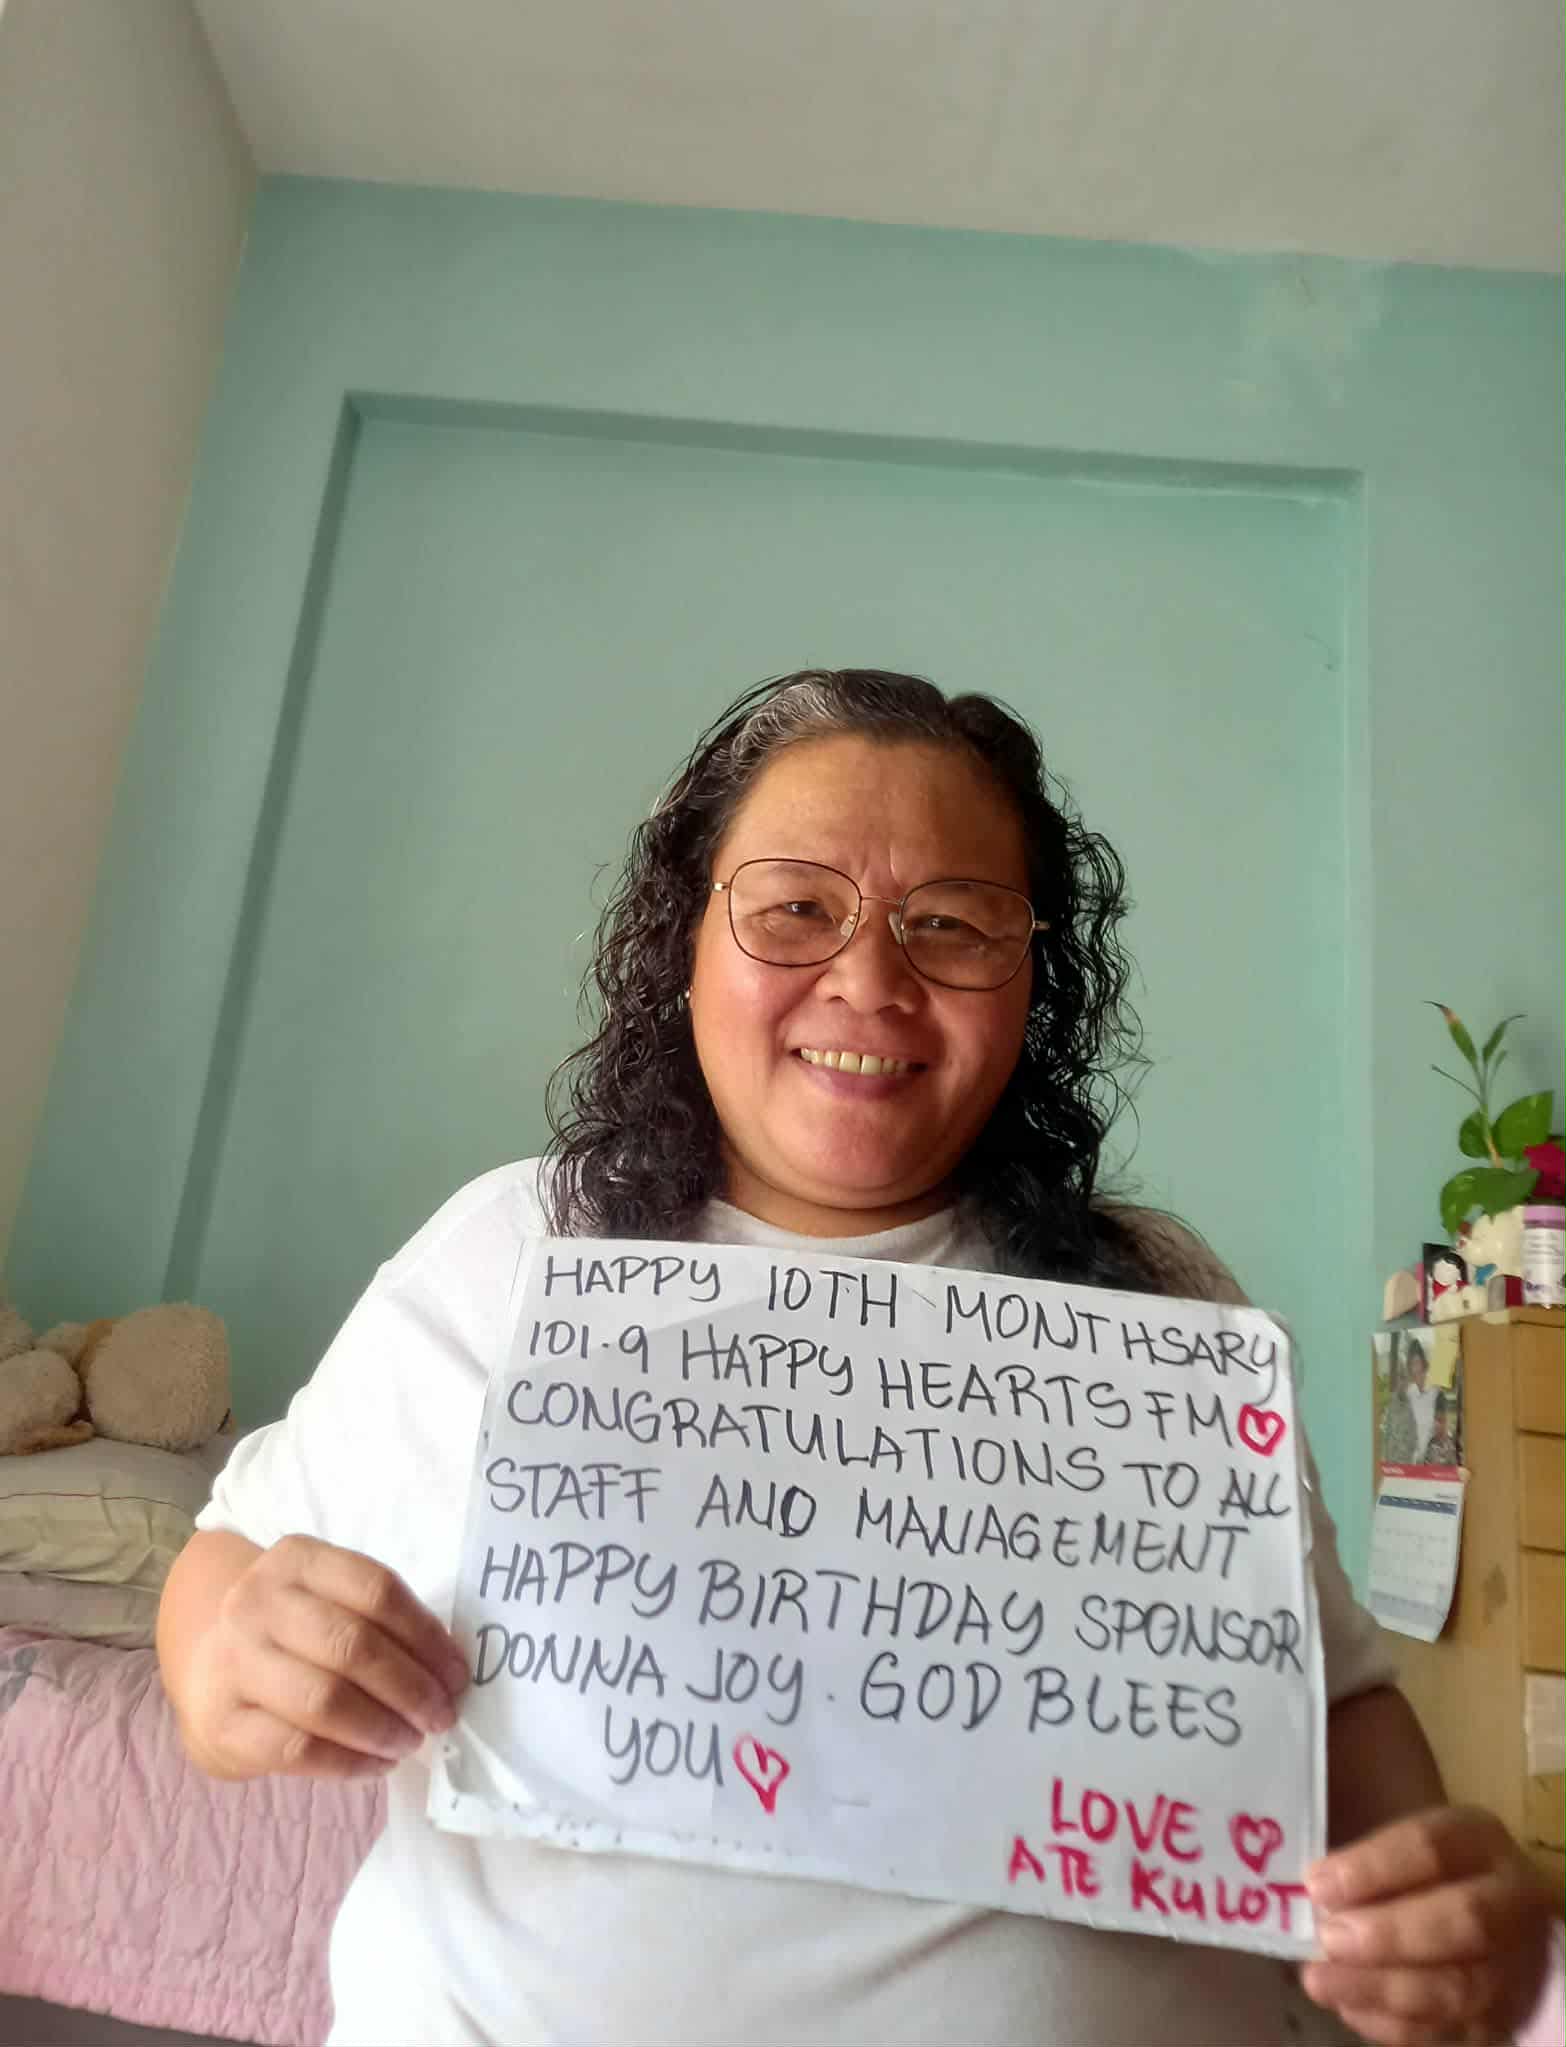 HAPPY 10TH MONTHSARY
101.9 HAPPY HEARTS FM
CONGRATULATIONS TO ALL
STAFF AND MANAGEMENT
HAPPY BIRTHDAY SPONSOR
DONNA JOY. GOD BLEES
YOU
LOVE
ATE KULOT